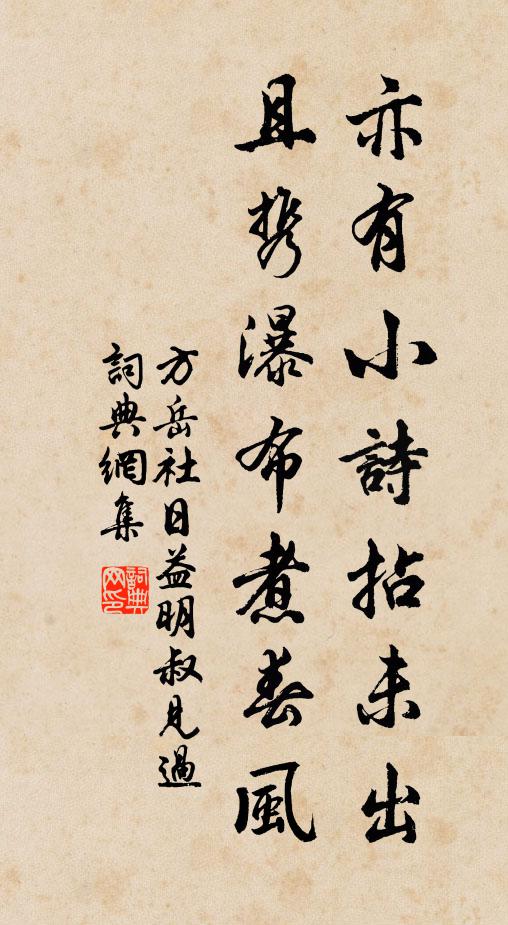 亦有小詩拈未出
且携瀑布煮春風
方岳社日益明叔見過
詞典網集
詞典網印